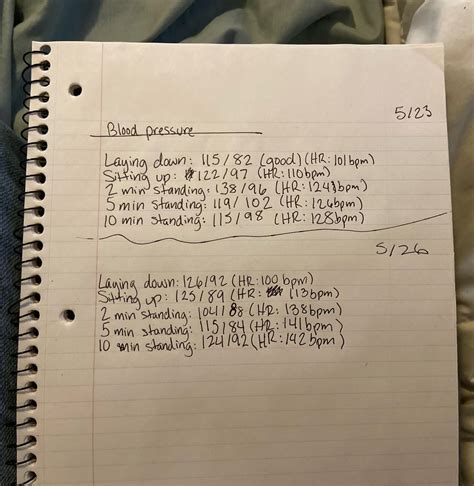 5/23
Blood pressure
Laying down: 115/82 (good) (HR: 101bpm)
Sitting up: 122/97 (HR: 110bpm)
2 min standing: 138/96 (HR: 124bpm)
5 min standing: 119/102 (HR: 126bpm)
10 min standing: 115/98 (HR: 128bpm)
5/26
Laying down: 126/92 (HR: 100 bpm)
Sitting up: 125/89 (HR: 113bpm)
2 min standing: 104/88 (HR: 138bpm)
5 min standing: 115/84 (HR: 141bpm)
10 min standing: 124/92 (HR: 142bpm)